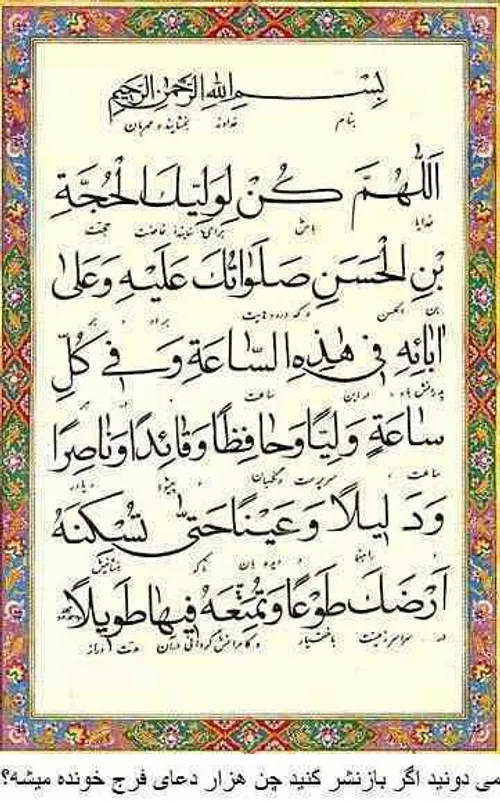 بِسْمِ اللهِ الرَّحْمٰنِ الرَّحِيْمِ
بنام خداوند بخشاینده و مهربان
اَللّٰهُمَّ كُنْ لِوَلِيِّكَ الْحُجَّةِ
خدایا باش برای نماینده خاصت حجت
بْنِ الْحَسَنِ صَلَوٰاتُكَ عَلَيْهِ وَعَلىٰ
بن الحسن که درودهایت بر او و بر
اٰبٰائِهِ فِى هٰذِهِ السّٰاعَةِ وَفِى كُلِّ
پدرانش باد در این ساعت
سٰاعَةٍ وَلِيًّا وَحٰافِظًا وَقٰائِدًا وَنٰاصِرًا
ساعت سرپرست و نگهبان پیشوا و یاور
وَدَلِيلًا وَعَيْنًا حَتّٰى تُسْكِنَهُ
راهنما و دیده بان تا که بنشانیش
اَرْضَكَ طَوْعًا وَتُمَتِّعَهُ فِيهٰا طَوِيلًا
در سراسر زمینت با اختیار و کامرانش گردانی در آن مدت دراز
می دونید اگر بازنشر کنید چن هزار دعای فرج خونده میشه؟